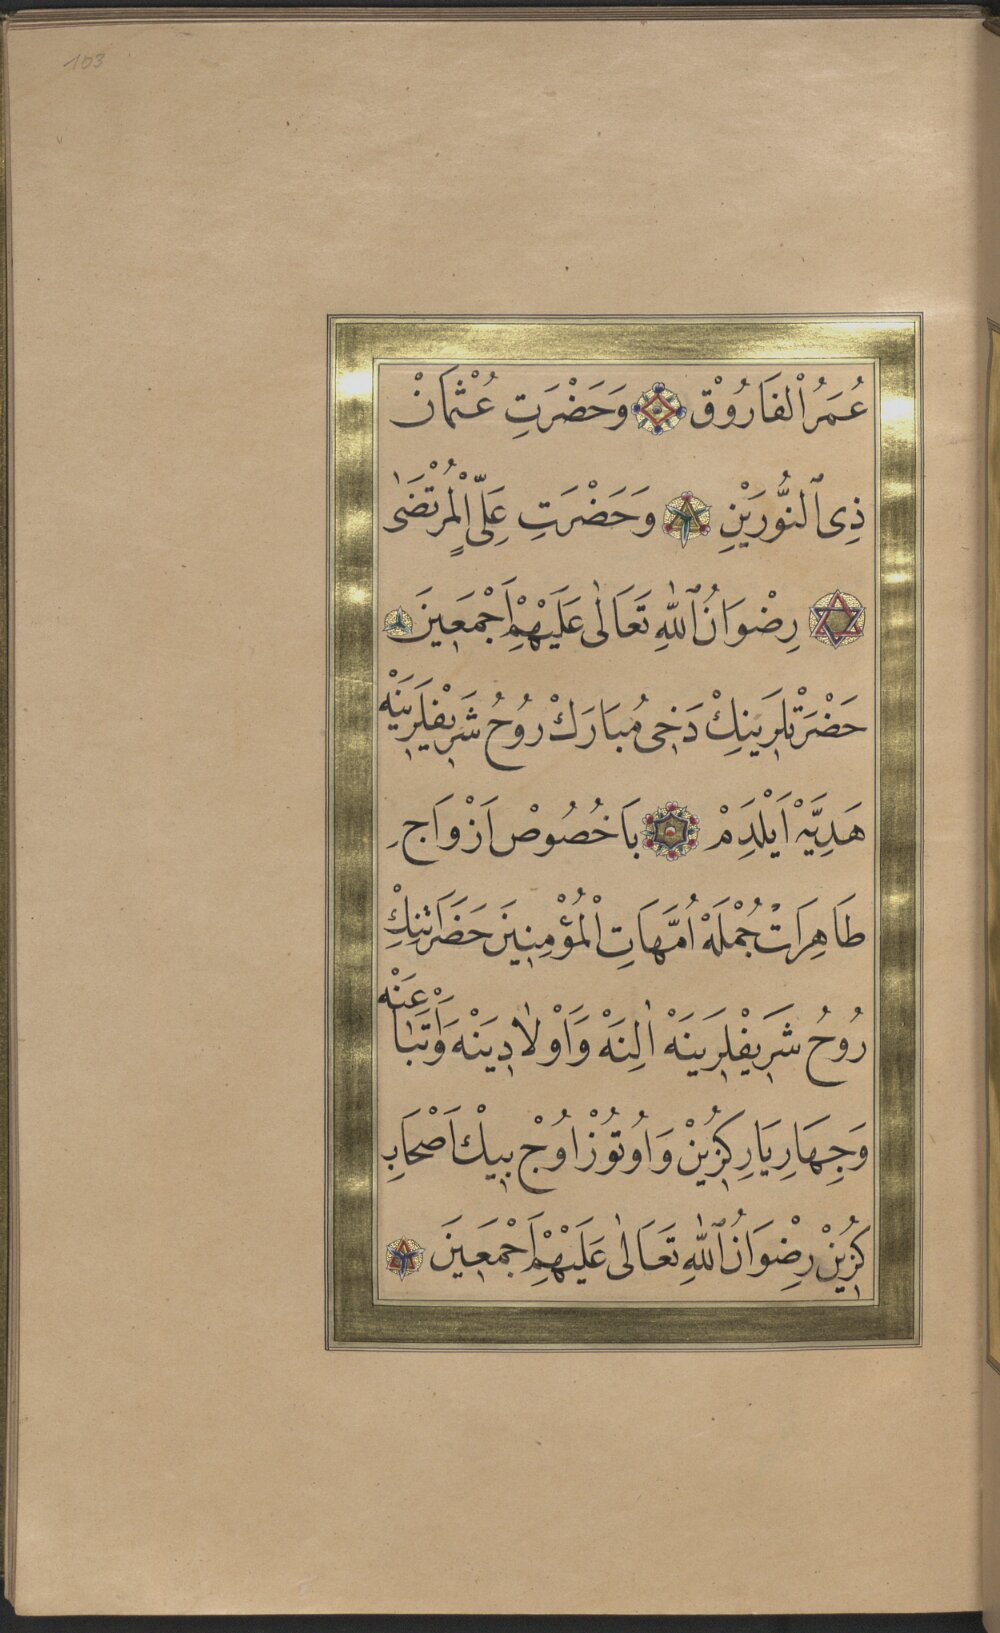 103
عُمَرُ اْلفَارُوْقْ وَحَضْرَتِ عُثْمَانْ
ذِى ٱلنُّورَيْنِ وَحَضْرَتِ عَلِىِّ اْلمُرْتَضٰى
رِضْوَانُ ٱللّٰهِ تَعَالٰى عَلَيْهِمْ اَجْمَعِينَ
حَضْرَتْلَرِينِكْ دَخِى مُبَارَكْ رُوحُ شَرِيفْلَرِينَهْ
هَدِيَّهْ اَيْلَدِمْ بَا خُصُوصْ اَزْوَاجِ
طَاهِرَاتْ جُمْلَهْ اُمَّهَاتِ اْلمُؤْمِنِينَ حَضَرَاتِنِكْ
رُوحُ شَرِيفْلَرِينَهْ اٰلِنَهْ وَاَوْلَادِينَهْ وَاَتْبَاعِنَهْ
وَچِهَارِ يَارِ كُزِينْ وَاُوتُوزْ اُوچْ بِيكْ اَصْحَابِ
كُزِينْ رِضْوَانُ ٱللّٰهِ تَعَالٰى عَلَيْهِمْ اَجْمَعِينَ